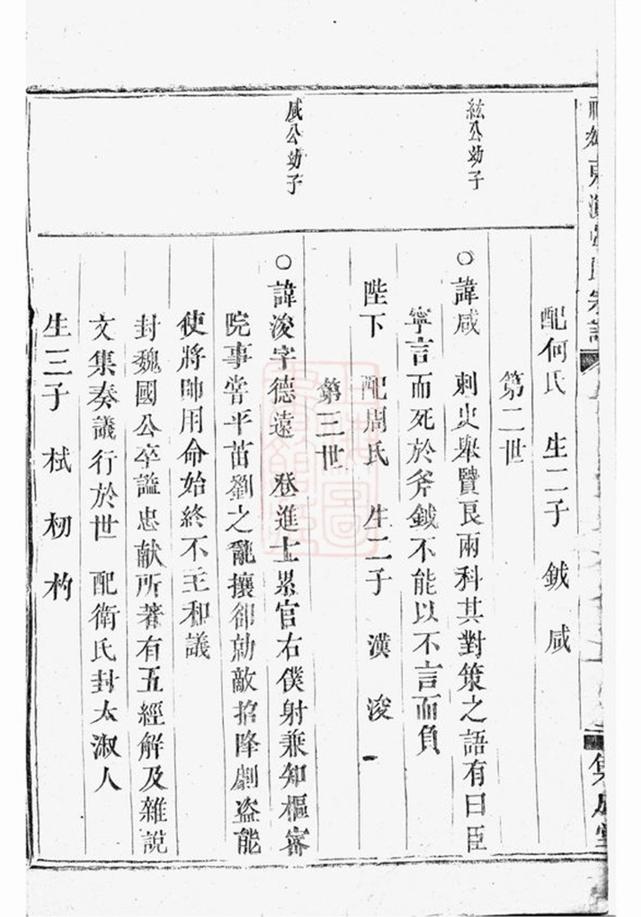 配何氏 生二子 鉞 咸
第二世
紘公幼子
○諱咸 刺史舉賢良兩科其對策之語有曰臣
寧言而死於斧鉞不能以不言而負
陛下 配周氏 生二子 滉 浚
第三世
咸公幼子
○諱浚字德遠 登進士累官右僕射兼知樞密
院事嘗平苗劉之亂攘卻勍敵招降劇盜能
使將帥用命始終不主和議
封魏國公卒謚忠献所著有五經解及雜說
文集奏議行於世 配衛氏封太淑人
生三子 栻 杒 杓